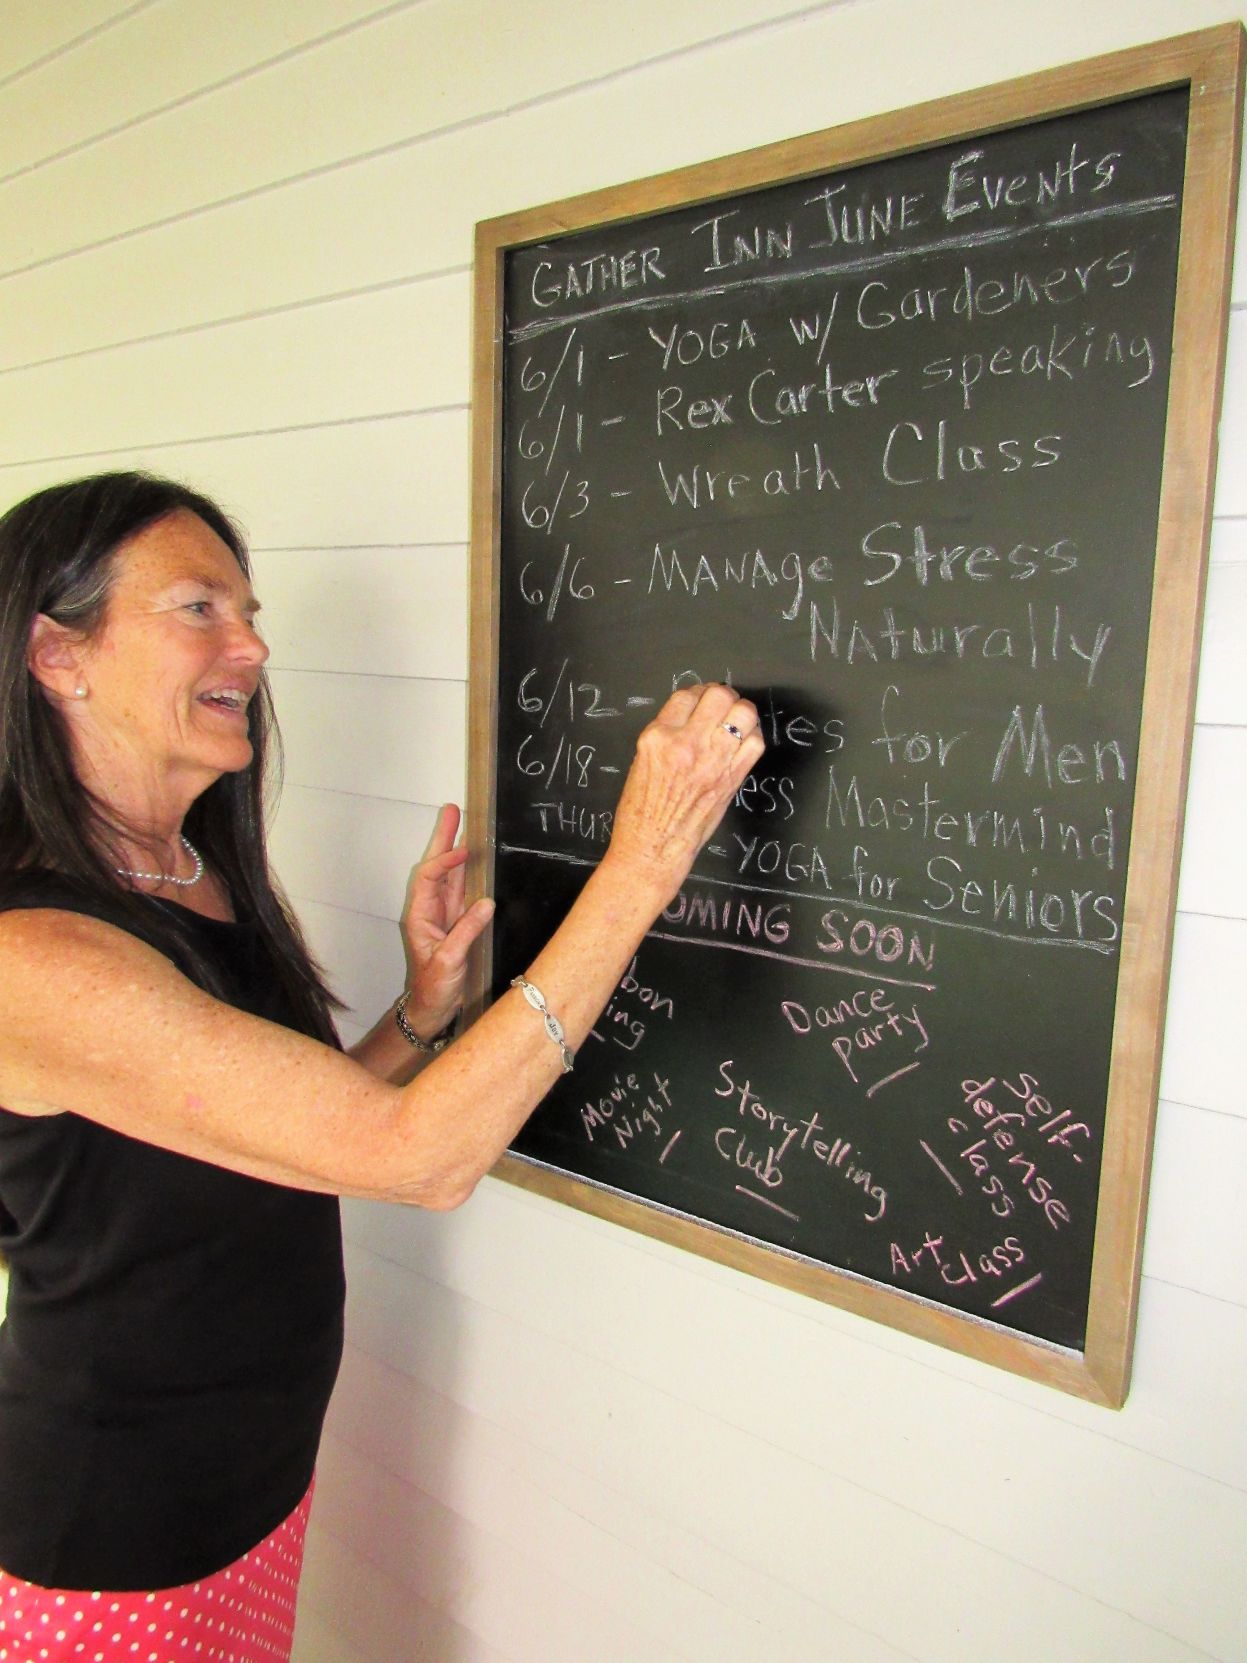 GATHER INN JUNE EVENTS
6/1 - YOGA w/ Gardeners
6/1 - Rex Carter speaking
6/3 - Wreath Class
6/6 - MANAge Stress
NAturally
6/12 - for Men
6/18 - Mastermind
- YOGA for Seniors
COMING SOON
Dance
party
Movie
Night
Storytelling
Club
Self-
defense
class
Art
class